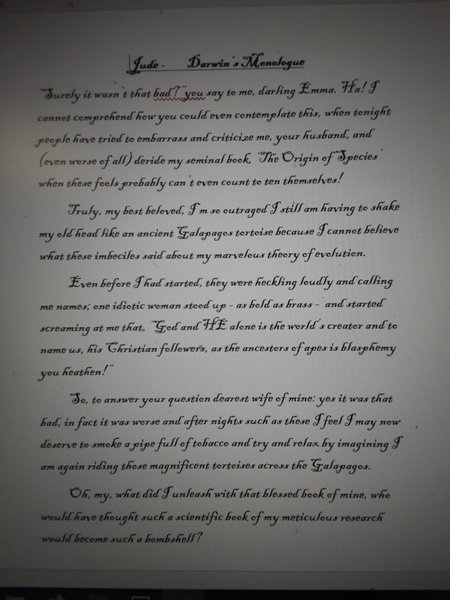 Jude - Darwin's Monologue
"Surely it wasn't that bad?" you say to me, darling Emma. Ha! I
cannot comprehend how you could even contemplate this, when tonight
people have tried to embarrass and criticize me, your husband, and
(even worse of all) deride my seminal book, 'The Origin of Species'
when these fools probably can't even count to ten themselves!
Truly, my best beloved, I'm so outraged I still am having to shake
my old head like an ancient Galapagos tortoise because I cannot believe
what these imbeciles said about my marvelous theory of evolution.
Even before I had started, they were heckling loudly and calling
me names; one idiotic woman stood up - as bold as brass - and started
screaming at me that, "God and HE alone is the world's creator and to
name us, his Christian followers, as the ancestors of apes is blasphemy
you heathen!"
So, to answer your question dearest wife of mine: yes it was that
bad, in fact it was worse and after nights such as these I feel I may now
deserve to smoke a pipe full of tobacco and try and relax by imagining I
am again riding those magnificent tortoises across the Galapagos.
Oh, my, what did I unleash with that blessed book of mine, who
would have thought such a scientific book of my meticulous research
would become such a bombshell?